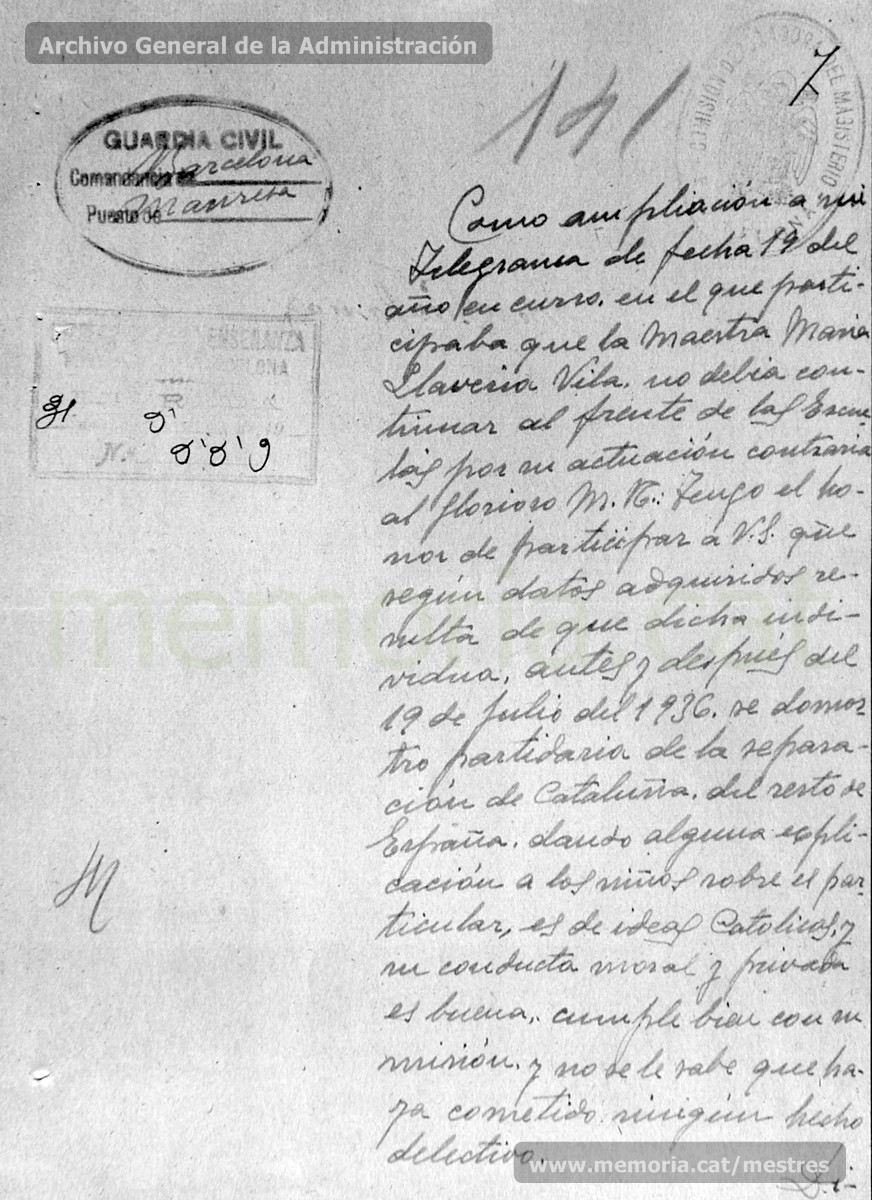 Archivo General de la Administración
7
141
COMISIÓN DEPURADORA DEL MAGISTERIO
GUARDIA CIVIL
Comandancia de Barcelona
Puesto de Manresa
ENSEÑANZA
N.º
Como ampliación a mi
Telegrama de fecha 19 del
año en curso, en el que parti-
cipaba que la Maestra Maria
Llaveria Vila, no debia con-
tinuar al frente de las Escue-
las por su actuación contraria
al Glorioso M. N.: Tengo el ho-
nor de participar a V.S. que
según datos adquiridos re-
sulta de que dicha indi-
vidua, antes y después del
19 de Julio del 1936, se demos-
tro partidaria de la separa-
ción de Cataluña, del resto de
España, dando alguna expli-
cación a los niños sobre el par-
ticular, es de ideas Catolicas, y
su conducta moral y privada
es buena, cumple bien con su
misión, y no se le sabe que ha-
ya cometido ningún hecho
delectivo.
Di-
memoria.cat
www.memoria.cat/mestres